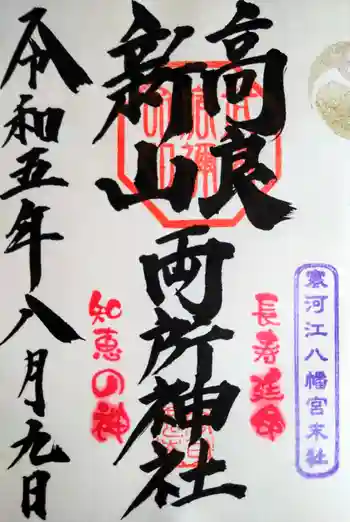 寒河江八幡宮末社
長寿延命
高良
新山
両所神社
知恵の神
令和五年八月九日